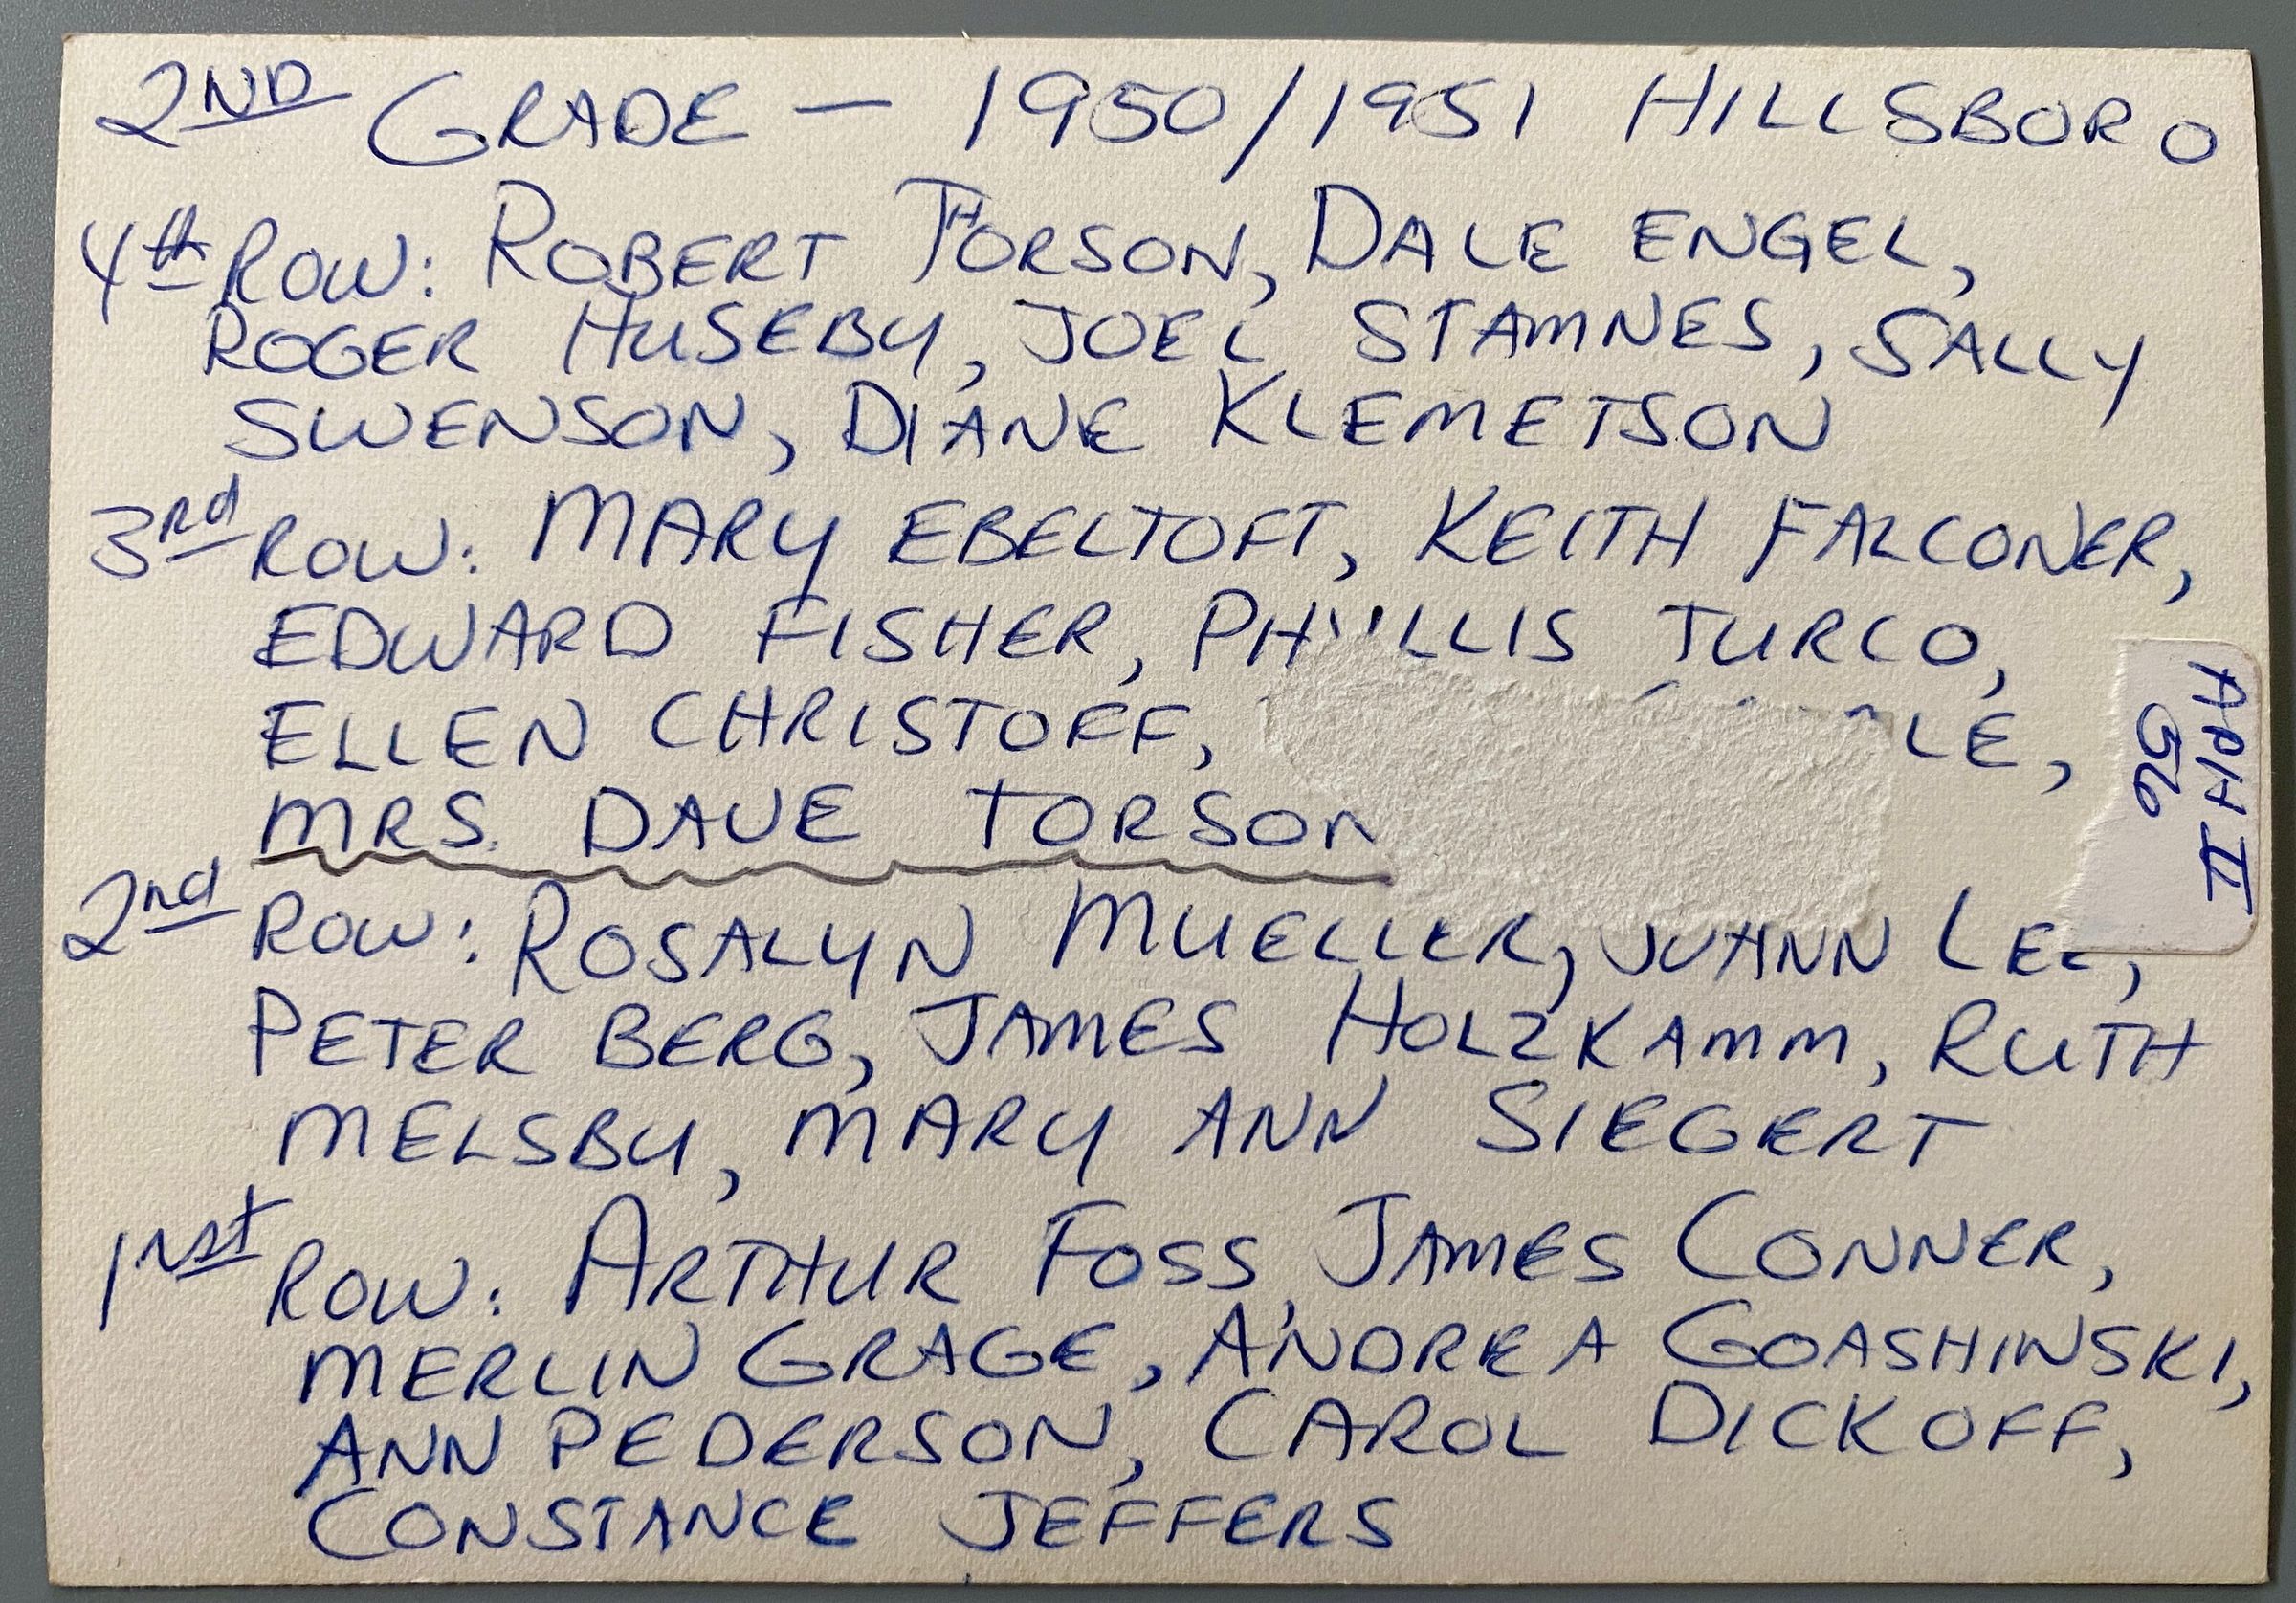 2ND GRADE — 1950/1951 HILLSBORO
4th ROW: ROBERT THORSON, DALE ENGEL,
ROGER HUSEBY, JOEL STAMNES, SALLY
SWENSON, DIANE KLEMETSON
3Rd ROW: MARY EBELTOFT, KEITH FALCONER,
EDWARD FISHER, PHYLLIS TURCO,
ELLEN CHRISTOFF,
MRS. DAVE TORSON
2nd ROW: ROSALYN MUELLER, JOANN LEE,
PETER BERG, JAMES HOLZKAMM, RUTH
MELSBY, MARY ANN SIEGERT
1st ROW: ARTHUR FOSS, JAMES CONNER,
MERLIN GRAGE, ANDREA GOASHINSKI,
ANN PEDERSON, CAROL DICKOFF,
CONSTANCE JEFFERS
HPH II